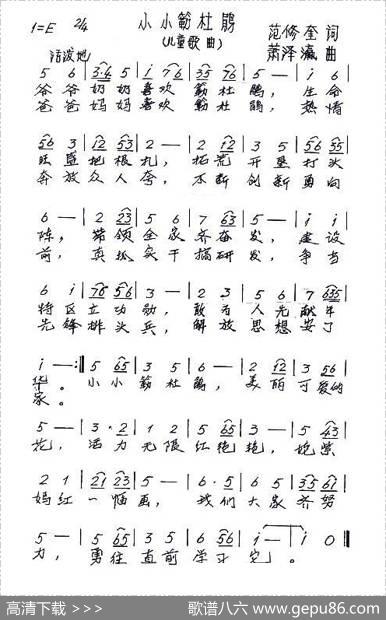 小小簕杜鹃
1=E 2/4
(儿童歌曲)
范修奎 词
萧泽瀛 曲
活泼地
5 6 | 3·4 5 | i 7 6 | 35 76 | 5 — | i 6 |
爷爷奶奶喜欢簕杜鹃，生命
爸爸妈妈喜欢簕杜鹃，热情
56 3 | 12 53 | 2 — | 2 12 | 3 5 | 56 55 |
旺盛把根扎，拓荒开垦打头
奔放众人夸，不断创新勇向
6 — | 2 23 | 5 6 | 7 63 | 5 — | i i |
阵，带领全家齐奋发，建设
前，真抓实干搞研发，争当
6 i | 76 56 | 3 — | 2 3 | 5 6 | 7 635 |
特区立功勋，敢为人先献年
先锋排头兵，解放思想安了
i — :| 5 65 | 3 5 | 6 — | 2 12 | 3 56 |
华。小小簕杜鹃，美丽可爱的
家。
5 — | 3·2 | 1 2 | 5 65 | 3 — | 5 43 |
花，活力无限红艳艳，姹紫
2 1 | 21 23 | 5 — | 6·5 | 6 5 | 35 61 |
嫣红一幅画，我们大家齐努
5 — | 5 65 | 3 5 | 6 56 | i — | i 0 ‖
力，勇往直前学
高清下载 >>>
歌谱八六 www.gepu86.com